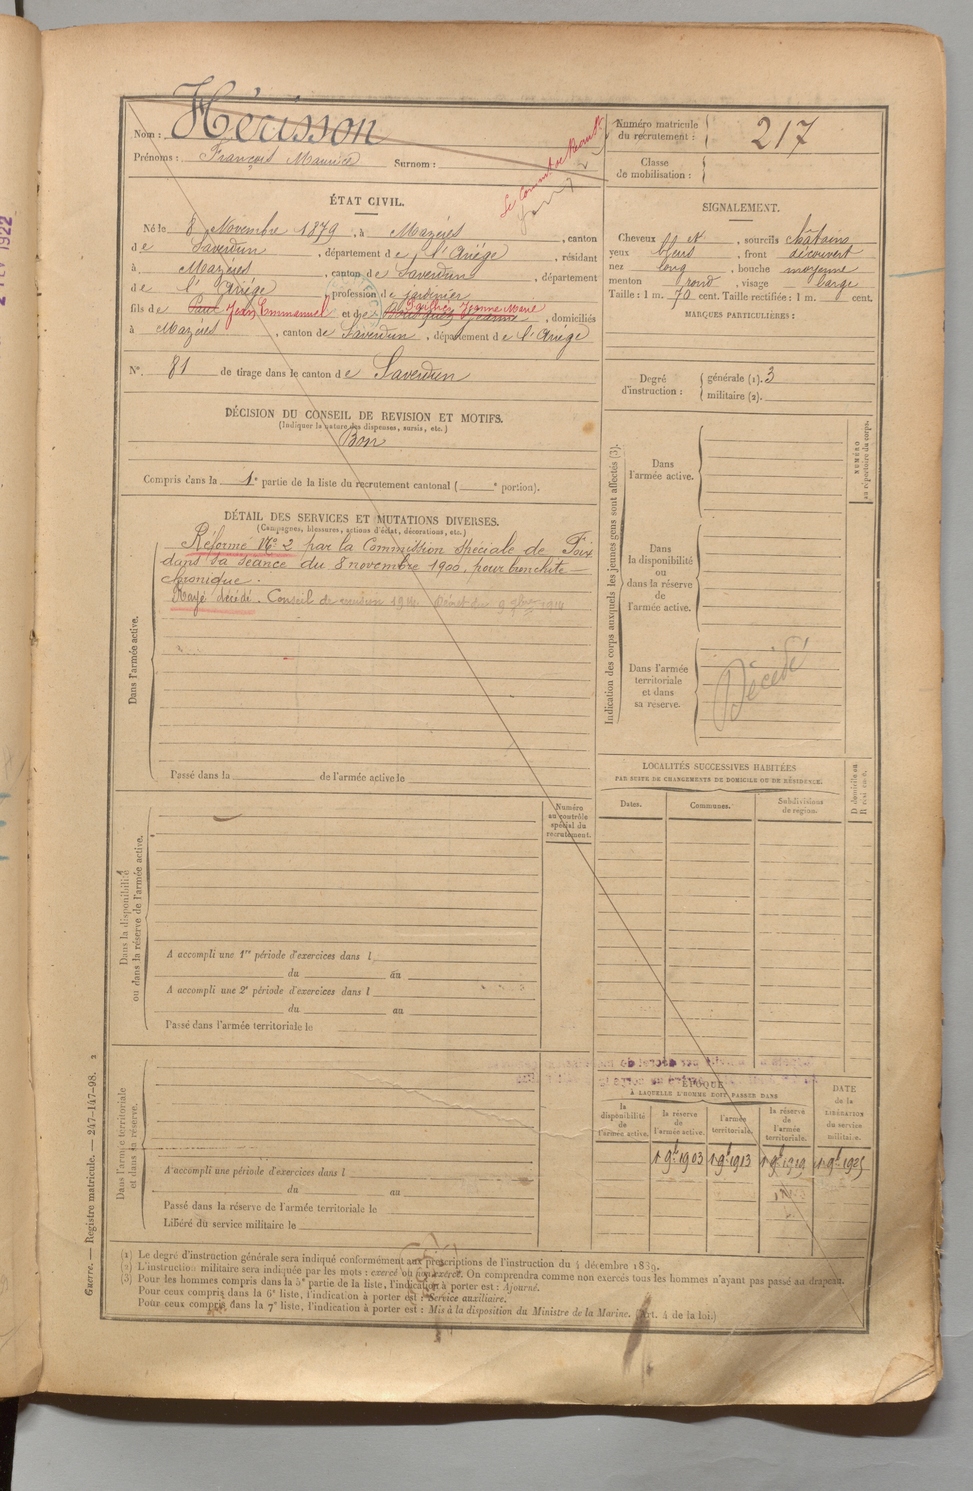 Nom : Hérisson
Prénoms : François Maurice Surnom :
Numéro matricule du recrutement : 217
Classe de mobilisation :
ÉTAT CIVIL.
Né le 8 Novembre 1879, à Mazères, canton
de Saverdun, département de l'Ariège, résidant
à Mazères, canton de Saverdun, département
de l'Ariège, profession de jardinier
fils de Paul Jean Emmanuel et de Jeanne Marie, domiciliés
à Mazères, canton de Saverdun, département de l'Ariège
N° 81 de tirage dans le canton de Saverdun
SIGNALEMENT.
Cheveux et, sourcils châtains
yeux gris, front découvert
nez long, bouche moyenne
menton rond, visage large
Taille : 1 m. 70 cent. Taille rectifiée : 1 m. cent.
MARQUES PARTICULIÈRES :
Degré d'instruction : générale (1). 3
militaire (2).
DÉCISION DU CONSEIL DE REVISION ET MOTIFS.
(Indiquer la nature des dispenses, sursis, etc.)
Bon
Compris dans la 1e partie de la liste du recrutement cantonal ( e portion).
DÉTAIL DES SERVICES ET MUTATIONS DIVERSES.
(Campagnes, blessures, actions d'éclat, décorations, etc.)
Réformé N° 2 par la Commission spéciale de Foix
dans sa séance du 8 novembre 1900, pour bronchite
chronique.
Rayé décédé. Conseil de revision 1914. Décret du 9 9bre 1914
Dans l'armée active.
Passé dans la de l'armée active le
Indication des corps auxquels les jeunes gens sont affectés (3).
NUMÉRO au répertoire du corps.
Dans l'armée active.
Dans la disponibilité ou dans la réserve de l'armée active.
Dans l'armée territoriale et dans sa réserve.
Décédé
LOCALITÉS SUCCESSIVES HABITÉES
PAR SUITE DE CHANGEMENTS DE DOMICILE OU DE RÉSIDENCE.
Dates. Communes. Subdivisions de région. D domicile ou R résidence.
Numéro au contrôle spécial du recrutement.
Dans la disponibilité ou dans la réserve de l'armée active.
A accompli une 1re période d'exercices dans l
du au
A accompli une 2e période d'exercices dans l
du au
Passé dans l'armée territoriale le
Dans l'armée territoriale et dans sa réserve.
A accompli une période d'exercices dans l
du au
Passé dans la réserve de l'armée territoriale le
Libéré du service militaire le
ÉPOQUE
À LAQUELLE L'HOMME DOIT PASSER DANS
la disponibilité de l'armée active.
la réserve de l'armée active.
l'armée territoriale.
la réserve de l'armée territoriale.
DATE de la LIBÉRATION du service militaire.
1 9bre 1903 1 9bre 1913 1 9bre 1919 1 9bre 1925
(1) Le degré d'instruction générale sera indiqué conformément aux prescriptions de l'instruction du 4 décembre 1889.
(2) L'instruction militaire sera indiquée par les mots : exercé ou non exercé. On comprendra comme non exercés tous les hommes n'ayant pas passé au drapeau.
(3) Pour les hommes compris dans la 4e partie de la liste, l'indication à porter est : Ajourné.
Pour ceux compris dans la 6e liste, l'indication à porter est : Service auxiliaire.
Pour ceux compris dans la 7e liste, l'indication à porter est : Mis à la disposition du Ministre de la Marine. (Art. 4 de la loi.)
Guerre. — Registre matricule. — 247-147-98. 2